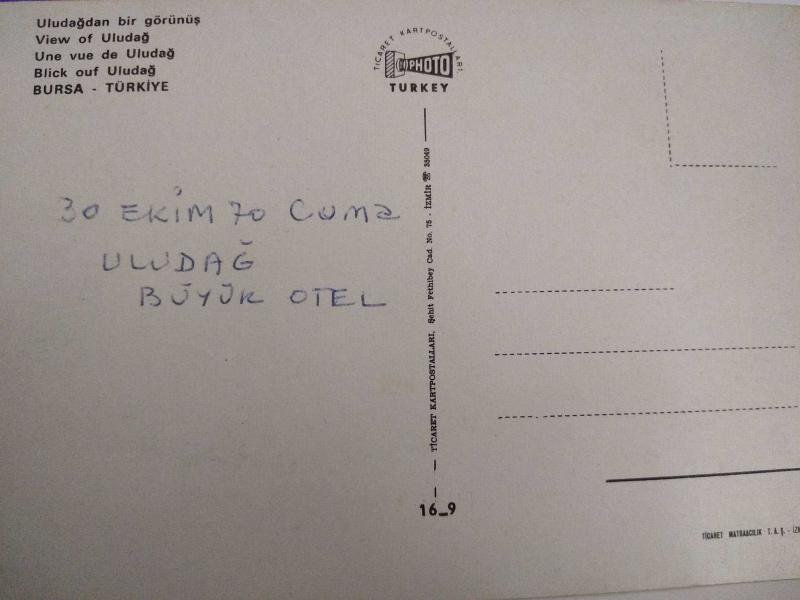 Uludağdan bir görünüş
View of Uludağ
Une vue de Uludağ
Blick ouf Uludağ
BURSA - TÜRKİYE
TİCARET KARTPOSTALLARI
PHOTO
TURKEY
30 EKİM 70 Cuma
ULUDAĞ
BÜYÜK OTEL
TİCARET KARTPOSTALLARI, Şehit Fethibey Cad. No. 75 - İZMİR ☎ 35049
16_9
TİCARET MATBAACILIK T. A. Ş. - İZM